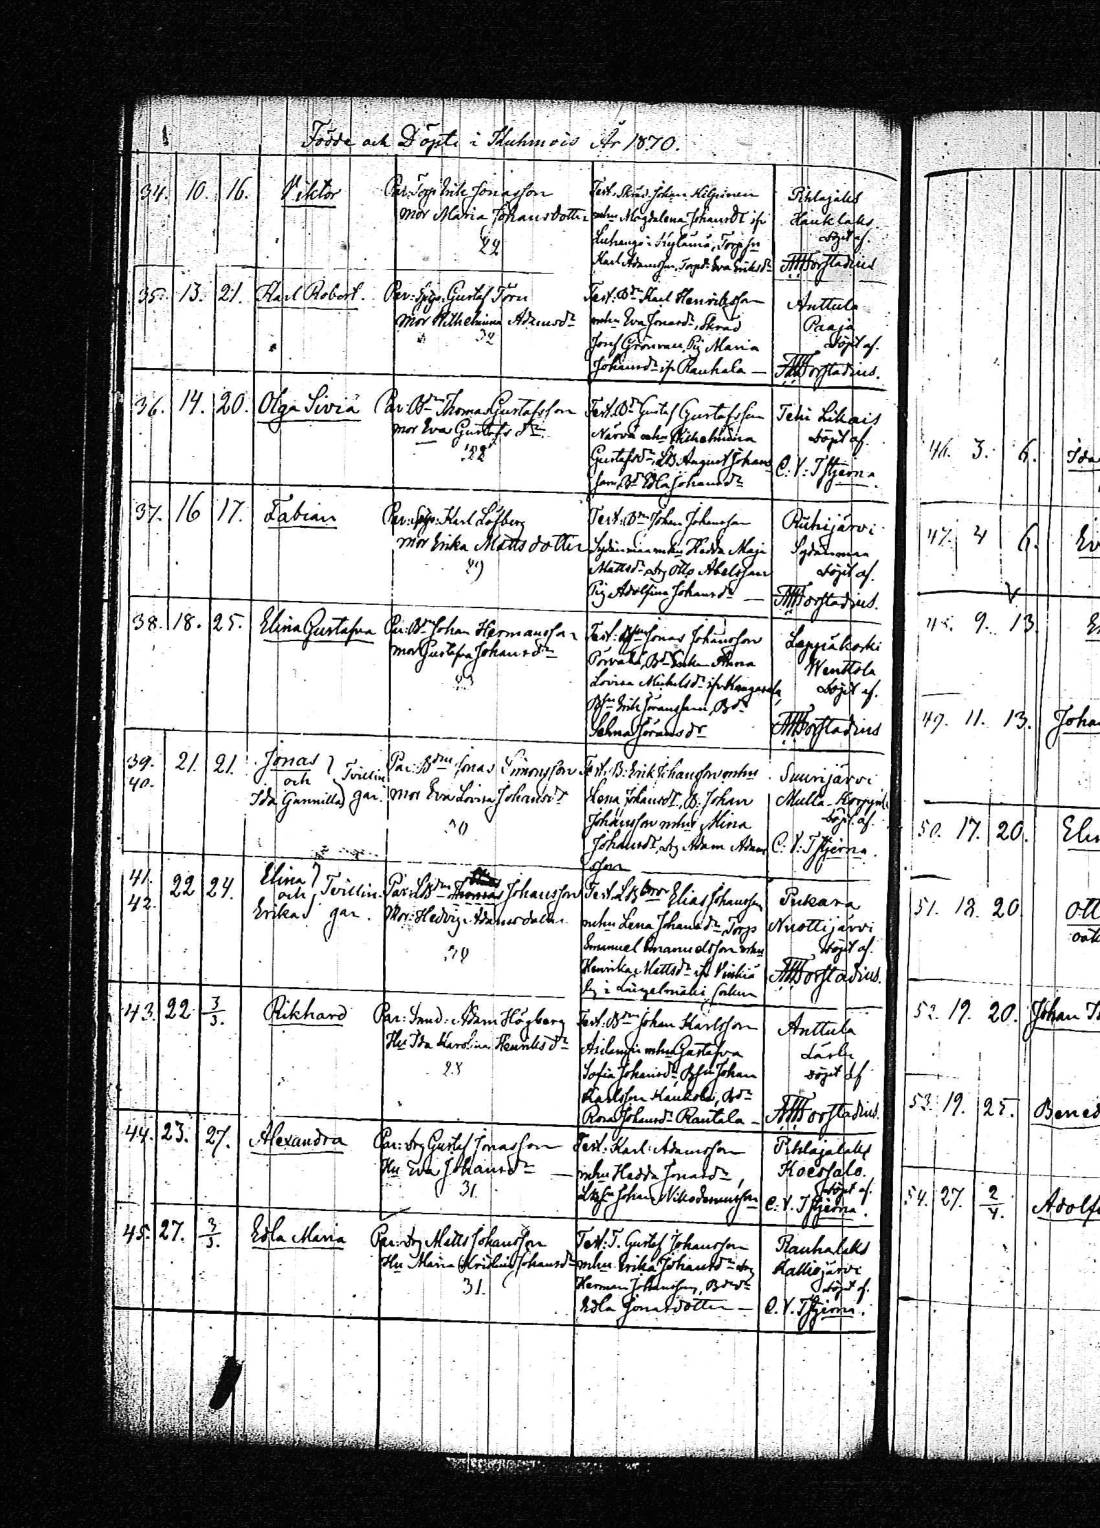 Födde och Döpte i Kuhmois År 1870.
34. 10. 16. Viktor
Par: Torp. Erik Jonasson
mor Maria Johansdotter
Test. Skräd. Johan Hilginen
mhu Magdalena Johansdr
Karl Adamsson, Torpdr Eva Eriksdr
Pihlajalaks
Haukilaks
döpt af.
Forstadius
35. 13. 21. Karl Robert.
Par: Gustaf Torn
mor Wilhelmina Adamsdr
32
Test. Bn Karl Henriksson
mhu Eva Jonasdr, Skräd
Josef Grönvall, Pig. Maria
Johansdr ifr Rauhala —
Anttula
Paaja
döpt af.
Forstadius.
36. 14. 20. Olga Siviä
Par: Bn Thomas Gustafsson
mor Eva Gustafsdr
22
Test. Bn Gustaf Gustafsson
Närvä mhu Wilhelmina
Gustafsdr, August Johans
son, Bdr Edla Johansdr
Tehi Likais
döpt af.
C. V. Tstjerna
37. 16 17. Fabian
Par: Karl Löfberg
mor Erika Mattsdotter
29
Test. Bn Johan Johansson
Sydänmaa mhu Hedda Maja
Mattsdr, Drg Otto Abelsson
Pig Adolfina Johansdr —
Ruhijärvi
Sydänmaa
döpt af.
Forstadius.
38. 18. 25. Elina Gustafva
Par: Bn Johan Hermansson
mor Gustafva Johansdr
Test. Jonas Johansson
Lovisa Mickelsdr ifr Kangasala,
Bsn Erik Göransson, Bdr
Selma Göransdr
Leppäkoski
Wenttola
döpt af.
Forstadius
39. 40. 21. 21. Jonas
och Tvillin
Ida Gunnilla gar.
Par: Bn Jonas Simonsson
mor Eva Lovisa Johansdr
30
Test. B. Erik Johansson mhu
Lena Johansdr, B. Johan
Johansson mhu Mina
Johansdr, Drg Adam Adams
son
Suurijärvi
Mulla
döpt af.
C. V. Tstjerna.
41. 42. 22 24. Elina
och Tvillin
Erika gar.
Par: Johansson
Mor: Hedvig Adamsdotter
Test. Elias Johansson
mhu Lena Johansdr, Torp
Emanuel Emanuelsson mhu
Henrika Mattsdr ifr
by i Längelmäki socken
Pukara
Nuottijärvi
döpt af.
Forstadius.
43. 22 3/3. Rikhard
Par: Smed: Adam Högberg
Hu Ida Karolina Henriksdr
28
Test. Bn Johan Karlsson
mhu Gustafva
Sofia Johansdr, Bsn Johan
Karlsson Haukola, Bdr
Rosa Johansdr Rautala —
Anttula
döpt af
Forstadius.
44. 23. 27. Alexandra
Par: Drg Gustaf Jonasson
Hu Eva Johansdr —
31.
Test: Karl Adamsson
mhu Hedda Jonasdr,
Johan Nikodemusson
Pihlajalaks
döpt af.
C. V. Tstjerna.
45. 27. 3/3. Edla Maria
Par: Drg Matts Johansson
Hu Maria Kristina Johansdr
31.
Test: T. Gustaf Johansson
mhu Erika Johansdr Drg
Herman Johansson, Bdr
Edla Jonasdotter —
Rauhalaks
Kalliojärvi
döpt af.
C. V. Tstjerna.
46. 3. 6. Ida
47. 4 6. Ev
9. 13. El
49. 11. 13. Joha
50. 17. 20. Elin
51. 18. 20 Ott
och
52. 19. 20. Johan
53. 19. 25. Bened
54. 27. 2/4. Adolf